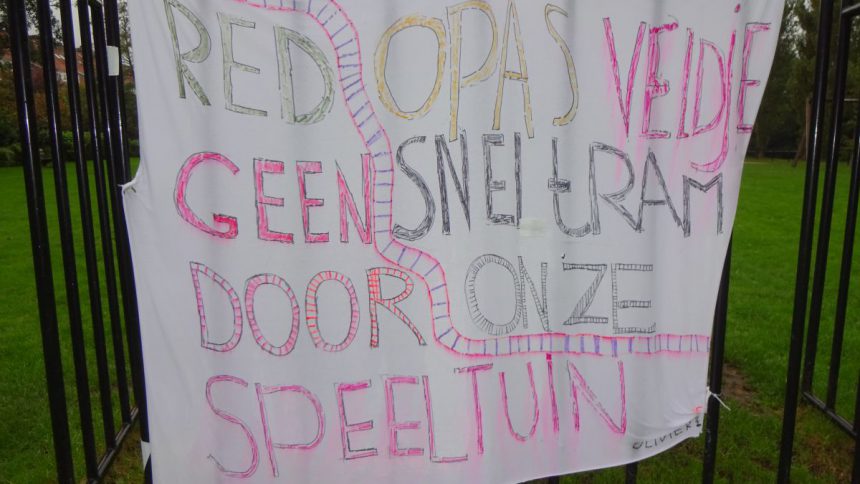 RED OPA'S VELDJE
GEEN SNELTRAM
DOOR ONZE
SPEELTUIN
OLIVIER